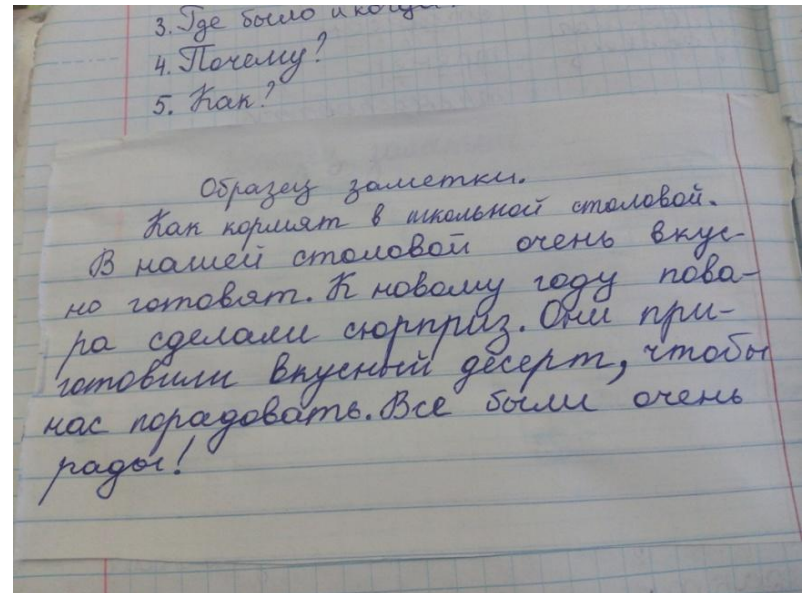 3. Где было и когда?
4. Почему?
5. Как?
Образец заметки.
Как кормят в школьной столовой.
В нашей столовой очень вкус-
но готовят. К новому году пова-
ра сделали сюрприз. Они при-
готовили вкусный десерт, чтобы
нас порадовать. Все были очень
рады!